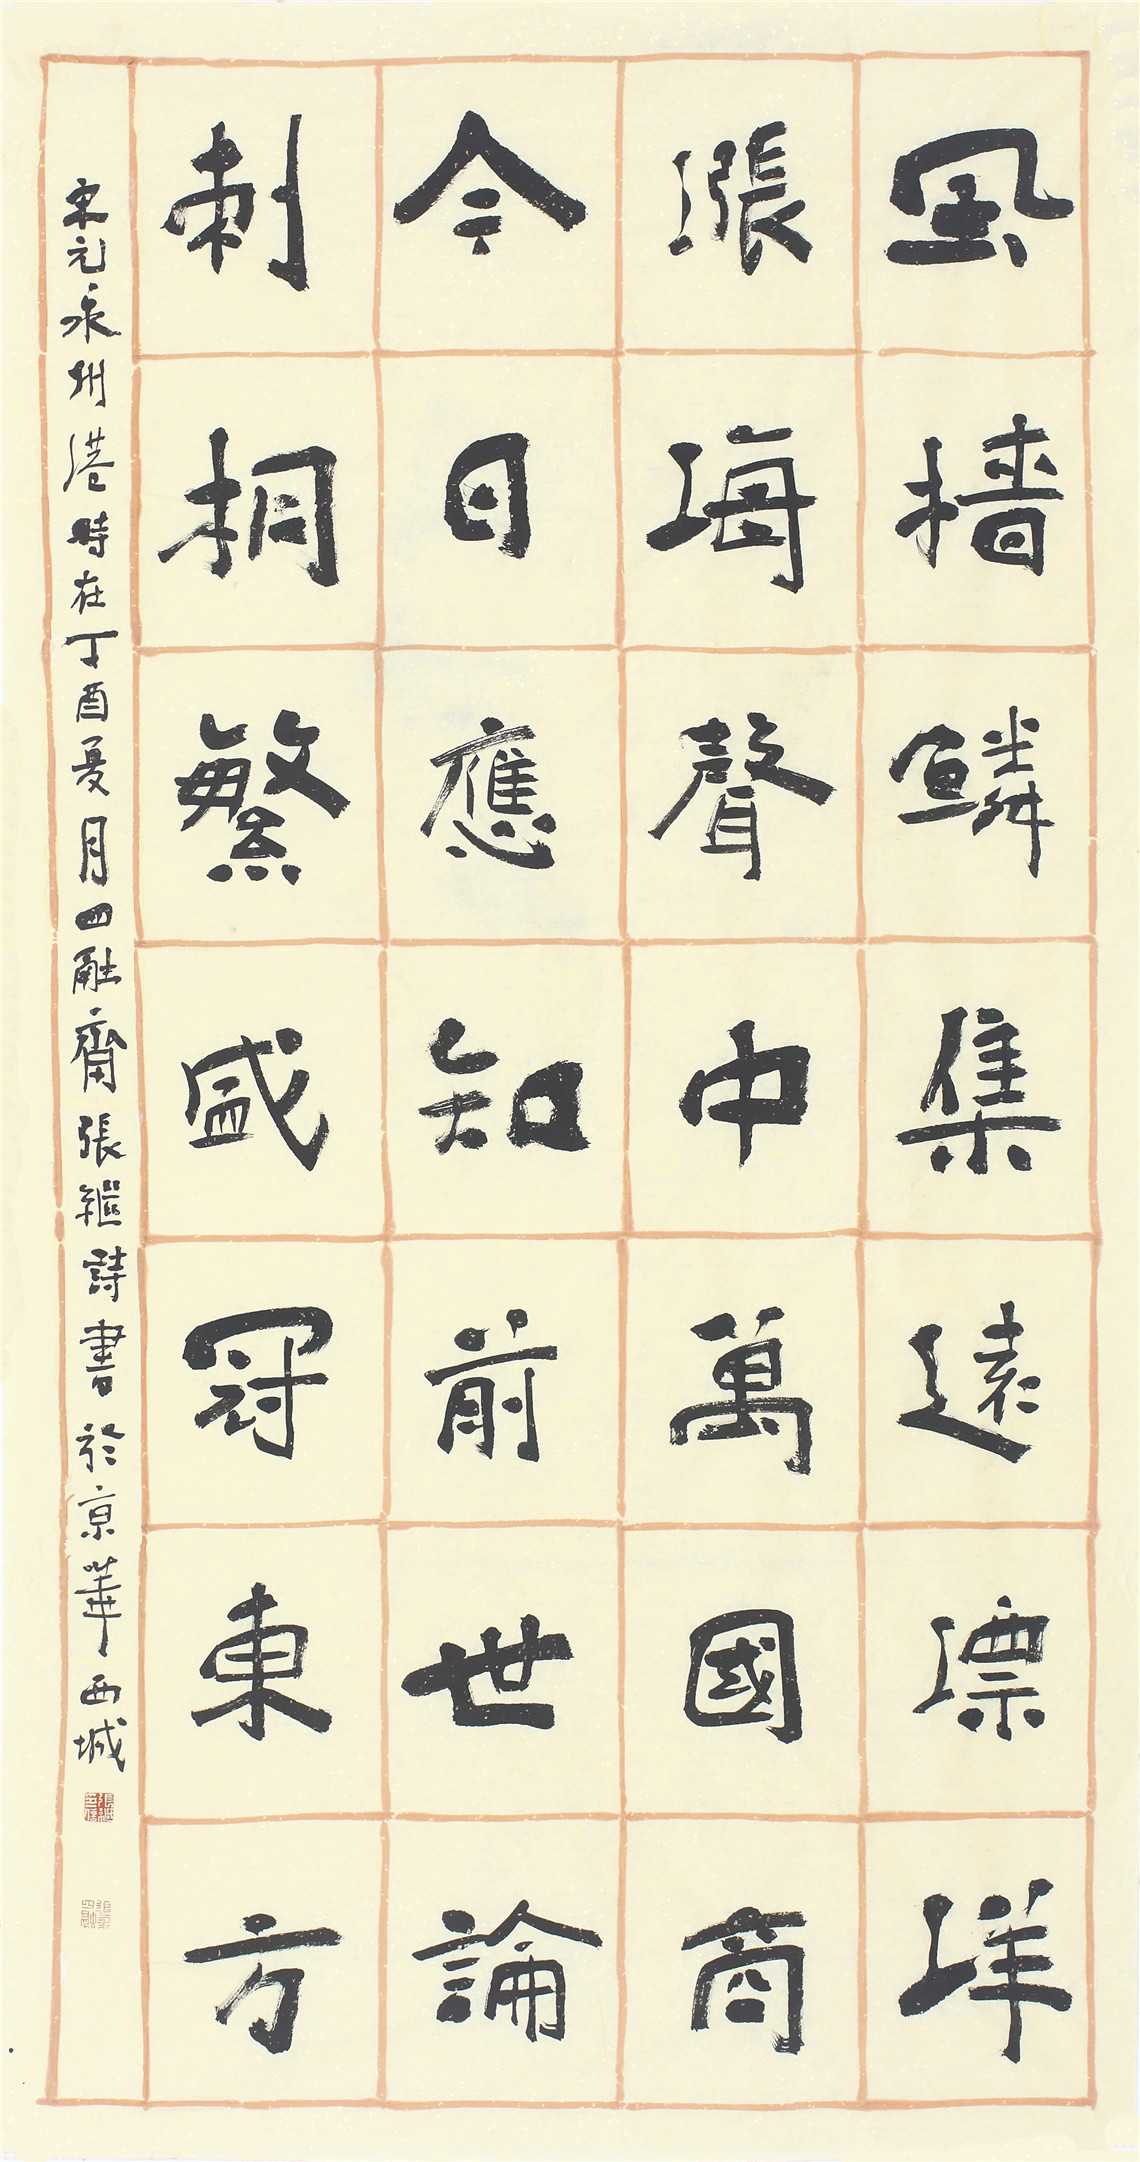 風檣鱗集遠漂洋
漲海聲中萬國商
今日應知前世論
刺桐繁盛冠東方
宋元泉州港時在丁酉夏月四融齋張繼詩書於京華西城